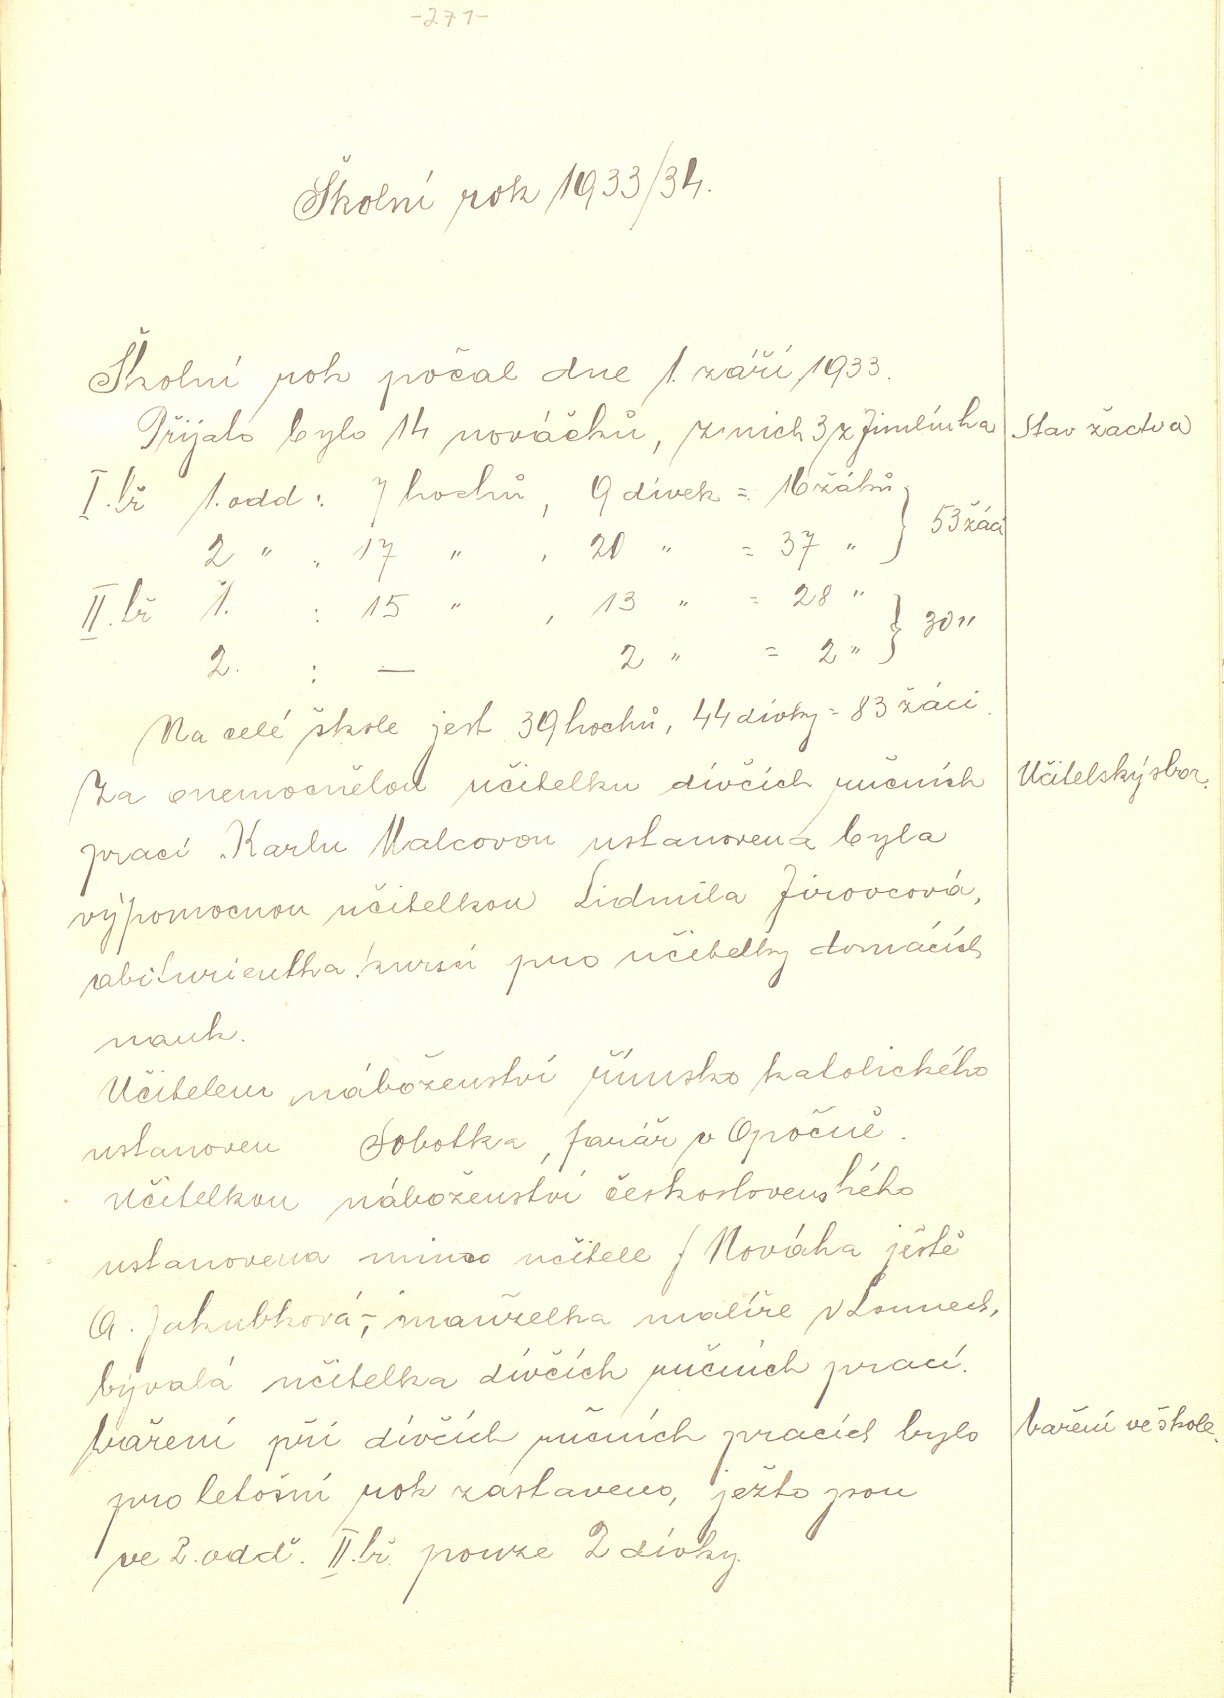 -271-
Školní rok 1933/34.
Školní rok počal dne 1. září 1933.
Přijato bylo 14 nováčků, z nich 3 z Jimlínka
Stav žactva
I. tř 1. odd : 7 hochů, 9 dívek = 16 žáků
53 žáci
2 " : 17 " , 20 " = 37 "
II. tř 1. : 15 " , 13 " = 28 "
30 "
2. : — 2 " = 2 "
Na celé škole jest 39 hochů, 44 dívky = 83 žáci.
Za onemocnělou učitelku dívčích ručních
Učitelský sbor.
prací Karlu Malcovou ustanovena byla
výpomocnou učitelkou Lidmila Jirovcová,
abiturientka kursu pro učitelky domácích
nauk.
Učitelem náboženství římsko katolického
ustanoven Sobotka, farář v Opočně.
Učitelkou náboženství československého
ustanovena mimo učitele J Nováka ještě
A. Jakubková, manželka malíře v Lounech,
bývalá učitelka dívčích ručních prací.
Vaření při dívčích ručních pracích bylo
Vaření ve škole.
pro letošní rok zastaveno, ježto jsou
ve 2. odd. II. tř. pouze 2 dívky.